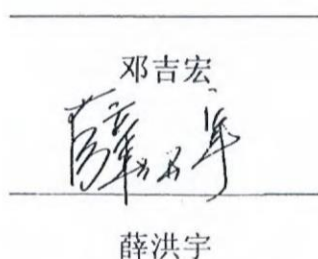 邓吉宏
薛洪宇